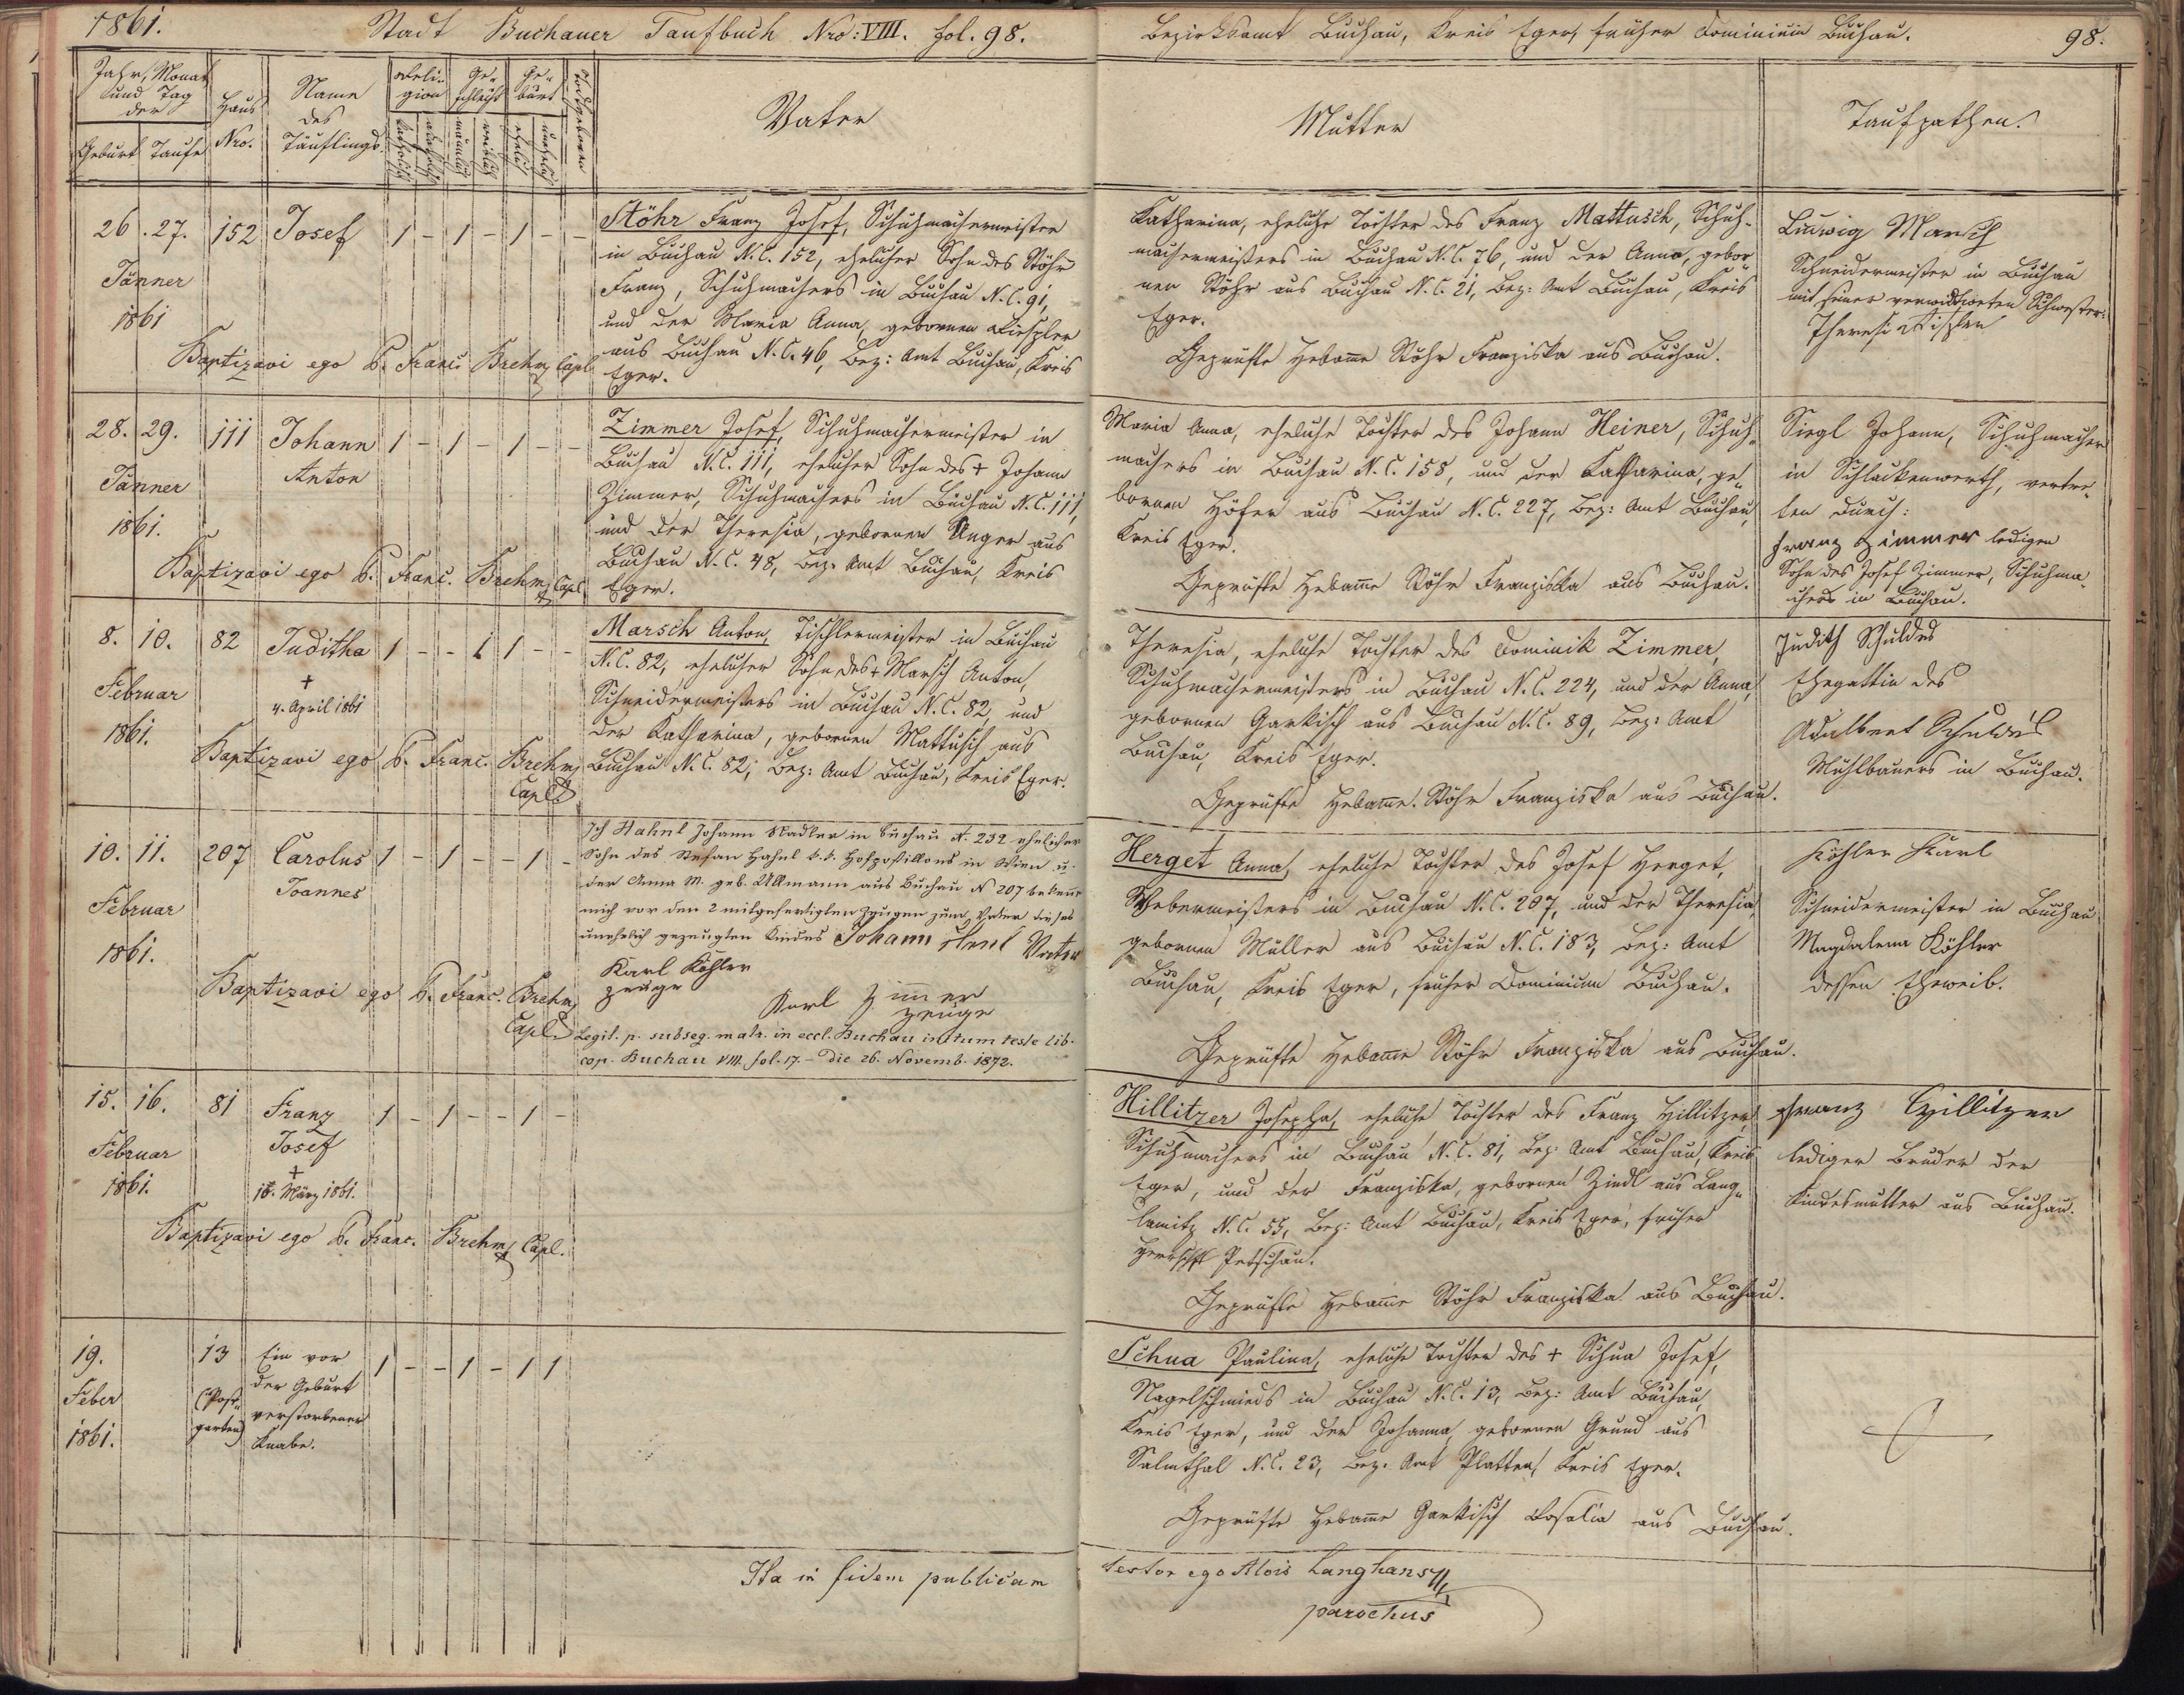 1861. Stadt Buchauer Taufbuch Nro: VIII. fol. 98.
Jahr, Monat und Tag der
Geburt Taufe
Haus Nro.
Name des Täuflings.
Religion
katholisch akatholisch
Geschlecht
männlich weiblich
Geburt
ehelich unehelich
Todtgeboren
Vater
26. 27. 152 Josef 1 - 1 - 1 - -
Jänner
1861
Stöhr Franz Josef, Schuhmachermeister
in Buchau N.C. 152, ehelicher Sohn des Stöhr
Franz, Schuhmachers in Buchau N.C. 91,
und der Maria Anna, gebornen
aus Buchau N.C. 46, Bez: Amt Buchau, Kreis
Eger.
Baptizavi ego P. Franc. Brehm Capl.
28. 29. 111 Johann 1 - 1 - 1 - -
Anton
Jänner
1861.
Zimmer Josef, Schuhmachermeister in
Buchau N.C. 111, ehelicher Sohn des + Johann
Zimmer, Schuhmachers in Buchau N.C. 111,
und der Theresia, gebornen Unger aus
Buchau N.C. 48, Bez. Amt Buchau, Kreis
Eger.
Baptizavi ego P. Franc. Brehm Capl.
8. 10. 82 Juditha 1 - - 1 1 - -
+
4. April 1861
Februar
1861.
Marsch Anton, Tischlermeister in Buchau
N.C. 82, ehelicher Sohn des + Marsch Anton,
Schneidermeisters in Buchau N.C. 82, und
der Katharina, gebornen Mattusch aus
Buchau N.C. 82, Bez: Amt Buchau, Kreis Eger.
Baptizavi ego P. Franc. Brehm
Capl.
10. 11. 207 Carolus 1 - 1 - - 1 -
Joannes
Februar
1861.
Ich Hahnl Johann Nadler in Buchau N. 232 ehelicher
Sohn des Stefan Hahnl k.k. Hofpostillons in Wien u.
der Anna M. geb. Ullmann aus Buchau N 207 bekenne
mich vor den 2 mitgefertigten Zeugen zum Vater dieses
unehelich gezeugten Kindes Johann Vater
Karl Köhler
Zeuge
Karl Zimmer
Zeuge
Baptizavi ego P. Franc. Brehm
Capl.
Legit. p. subseq. matr. in eccl. Buchau initum teste lib.
cop. Buchau VIII. fol. 17. - Die 26. Novemb. 1872.
15. 16. 81 Franz 1 - 1 - - 1 -
Josef
+
März 1861.
Februar
1861.
Baptizavi ego P. Franc. Brehm Capl.
19. 13 Ein vor 1 - - 1 - 1 1
der Geburt
Feber verstorbener
1861. Knabe.
Ita in fidem publicam
Bezirksamt Buchau, Kreis Eger, früher Dominium Buchau. 98.
Mutter
Taufpathen.
Katharina, eheliche Tochter des Franz Mattusch, Schuh-
machermeisters in Buchau N.C. 76, und der Anna, gebor-
nen Stöhr aus Buchau N.C. 21, Bez: Amt Buchau, Kreis
Eger.
Geprüfte Hebamme Stöhr Franziska aus Buchau.
Ludwig Marsch
Schneidermeister in Buchau
mit seiner verwittweten Schwester:
Theresi
Maria Anna, eheliche Tochter des Johann Heiner, Schuh-
machers in Buchau N.C. 158, und der Katharina, ge-
bornen Höfer aus Buchau N.C. 227, Bez: Amt Buchau,
Kreis Eger.
Geprüfte Hebamme Stöhr Franziska aus Buchau.
Siegl Johann, Schuhmacher
in Schlackenwerth, vertre-
ten durch:
Franz Zimmer ledigen
Sohn des Josef Zimmer, Schuhma-
chers in Buchau.
Theresia, eheliche Tochter des Dominik Zimmer,
Schuhmachermeisters in Buchau N.C. 224, und der Anna,
gebornen Garkisch aus Buchau N.C. 89, Bez: Amt
Buchau, Kreis Eger.
Geprüfte Hebamme Stöhr Franziska aus Buchau.
Judith Schuldes
Ehegattin des
Adalbert Schuldes
Mühlbauers in Buchau.
Herget Anna, eheliche Tochter des Josef Herget,
Webermeisters in Buchau N.C. 207, und der Theresia,
gebornen Müller aus Buchau N.C. 183, Bez: Amt
Buchau, Kreis Eger, früher Dominium Buchau.
Geprüfte Hebamme Stöhr Franziska aus Buchau.
Köhler Karl
Schneidermeister in Buchau
Magdalena Köhler
dessen Eheweib.
Hillitzer Josepha, eheliche Tochter des Franz Hillitzer,
Schuhmachers in Buchau N.C. 81, Bez: Amt Buchau, Kreis
Eger, und der Franziska, gebornen Zindl aus Lang-
lamitz N.C. 55, Bez: Amt Buchau, Kreis Eger, früher
Herrschft Petschau.
Geprüfte Hebamme Stöhr Franziska aus Buchau.
Franz Hillitzer
lediger Bruder der
Kindesmutter aus Buchau.
Schua Paulina, eheliche Tochter des + Schua Josef,
Nagelschmieds in Buchau N.C. 13, Bez: Amt Buchau,
Kreis Eger, und der Johanna, gebornen Grund aus
Salmthal N.C. 23, Bez. Amt Platten, Kreis Eger.
Geprüfte Hebamme Garkisch Rosalia aus Buchau.
testor ego Alois Langhans
parochus